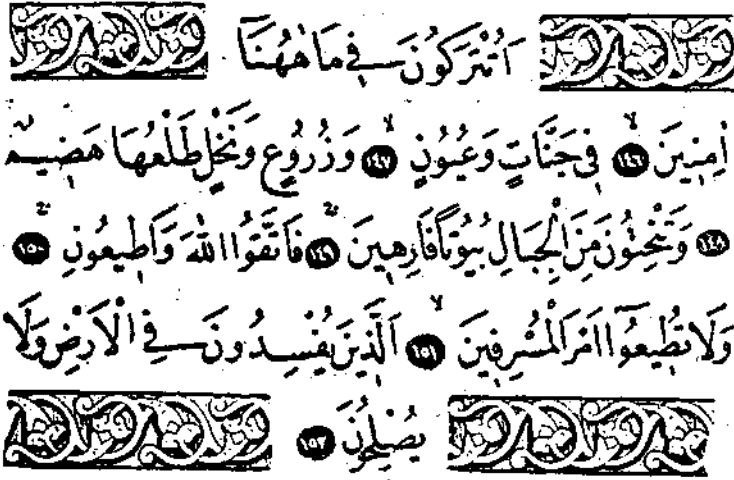 اَتُتْرَكُونَ فِي مَا هٰهُنَآ
اٰمِنِينَ ۙ ﴿١٤٦﴾ فِي جَنَّاتٍ وَعُيُونٍ ۙ ﴿١٤٧﴾ وَزُرُوعٍ وَنَخْلٍ طَلْعُهَا هَضِيمٌ
﴿١٤٨﴾ وَتَنْحِتُونَ مِنَ الْجِبَالِ بُيُوتًا فَارِهِينَ ﴿١٤٩﴾ فَاتَّقُوا اللّٰهَ وَاَطِيعُونِ ﴿١٥٠﴾
وَلَا تُطِيعُٓوا اَمْرَ الْمُسْرِفِينَ ۙ ﴿١٥١﴾ اَلَّذِينَ يُفْسِدُونَ فِي الْاَرْضِ وَلَا
يُصْلِحُونَ ﴿١٥٢﴾